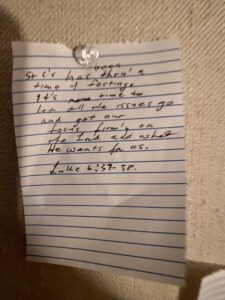 been
St C's has thru' a
time of testing
It's time to
let all the issues go
and get our
focus firmly on
the Lord and what
He wants for us.
Luke 6:37-38.